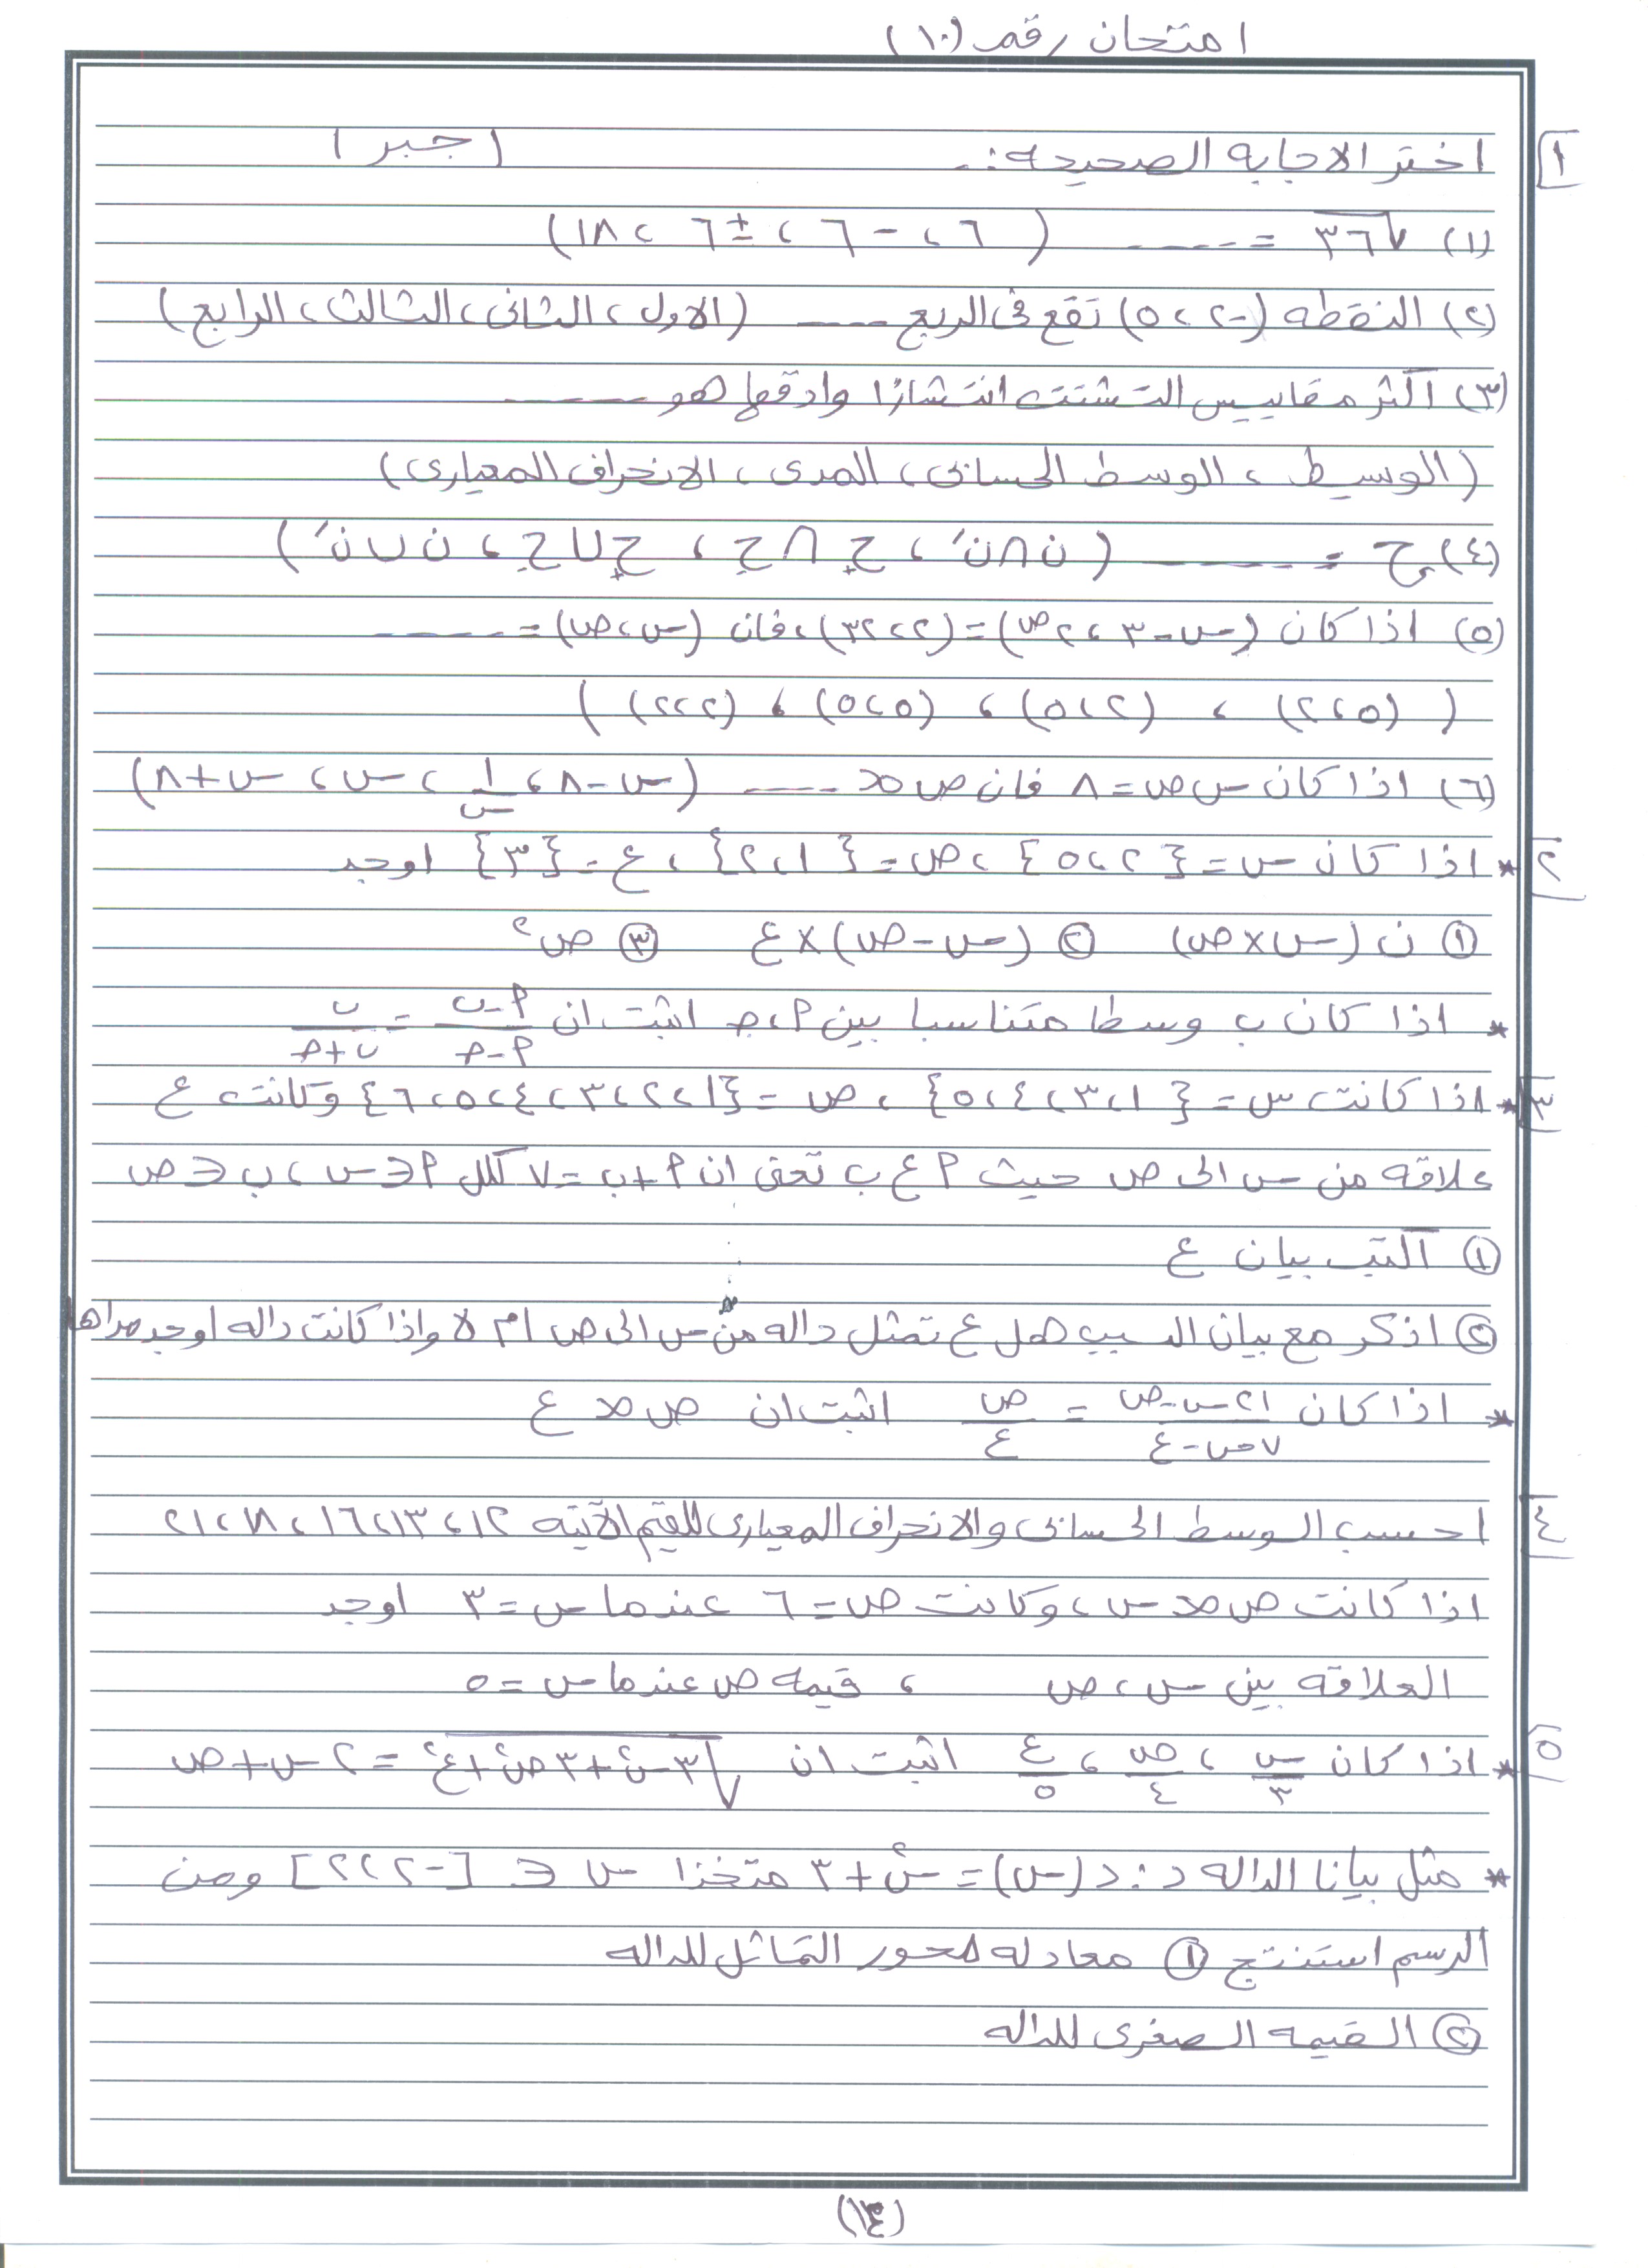 امتحان رقم (١٠)
١ اختر الاجابه الصحيحه :. (جبر)
(١) √٣٦ = ---- (٦ ، -٦ ، ±٦ ، ١٨)
(٢) النقطه (-٢ ، ٥) تقع فى الربع ---- (الاول ، الثانى ، الثالث ، الرابع)
(٣) اكثر مقاييس التشتت انتشارًا وادقها هو ----
(الوسيط ، الوسط الحسابى ، المدى ، الانحراف المعيارى)
(٤) ح = ---- (ن ∩ نَ ، ح₊ ∩ ح₋ ، ح₊ ∪ ح₋ ، ن ∪ نَ)
(٥) اذا كان (س-٣ ، ٢^ص) = (٢ ، ٣٢) ، فان (س ، ص) = ----
( (٥ ، ٢) ، (٢ ، ٥) ، (٥ ، ٥) ، (٢ ، ٢) )
(٦) اذا كان س ص = ٨ فان ص ∝ ---- (س-٨ ، ١/س ، س ، س+٨)
٢ * اذا كان س = {٢ ، ٥} ، ص = {١ ، ٢} ، ع = {٣} اوجد
① ن (س×ص) ② (س-ص)×ع ③ ص²
* اذا كان ب وسطا متناسبا بين م ، جـ اثبت ان (م-ب)/(م-جـ) = ب/(ب+جـ)
٣ * اذا كانت س = {١ ، ٣ ، ٤ ، ٥} ، ص = {١ ، ٢ ، ٣ ، ٤ ، ٥ ، ٦} وكانت ع
علاقه من س الى ص حيث م ع ب تعنى ان م+ب = ٧ لكل م ∈ س ، ب ∈ ص
① اكتب بيان ع
② اذكر مع بيان السبب هل ع تمثل داله من س الى ص ام لا واذا كانت داله اوجد مداها
* اذا كان (٢١س-ص)/(٧س-ع) = ص/ع اثبت ان ص ∝ ع
٤ احسب الوسط الحسابى والانحراف المعيارى للقيم الآتيه ١٢ ، ١٣ ، ١٦ ، ١٨ ، ٢١
اذا كانت ص ∝ س ، وكانت ص = ٦ عندما س = ٣ اوجد
العلاقه بين س ، ص ، قيمه ص عندما س = ٥
٥ * اذا كان س/٣ ، ص/٤ ، ع/٥ اثبت ان √(٣س²+٣ص²+ع²) = ٢س+ص
* مثل بيانا الداله د : د(س) = س²+٣ متخذا س ∈ [-٢ ، ٢] ومن
الرسم استنتج ① معادله محور التماثل للداله
② القيمه الصغرى للداله
(١٤)